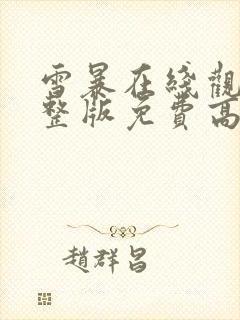 雪暴在綫觀
整版免費高
趙群昌